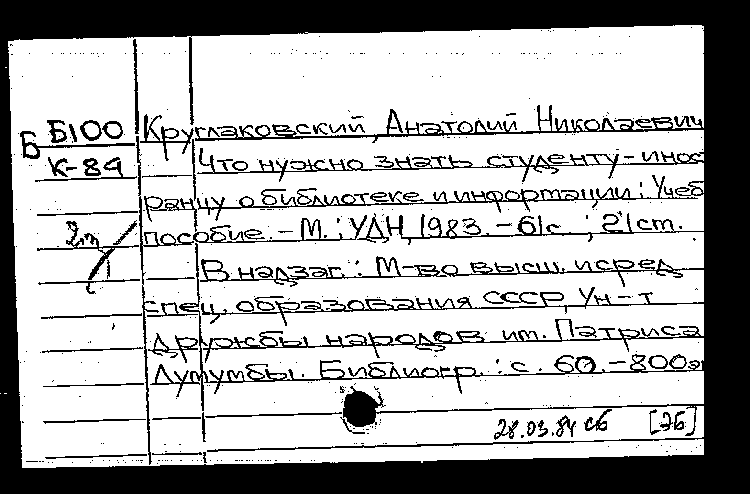 Б Б100 Круглаковский, Анатолий Николаевич
К-84 Что нужно знать студенту-инос
ранцу о библиотеке и информации: Учеб
пособие. - М.: УДН, 1983. - 61с ; 21 ст.
В надзаг.: М-во высш. и сред
спец. образования СССР, Ун-т
дружбы народов им. Патриса
Лумумбы. Библиогр.: с. 60. - 800э
28.03.84 сб [ЭБ]